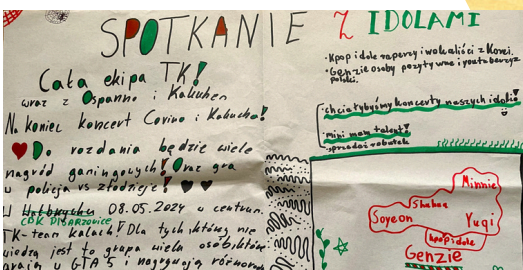 SPOTKANIE Z IDOLAMI
Cała ekipa TK!
wraz z Ospanno i Kakuben
Na koniec koncert Corino i Kakucha!
Do rozdania będzie wiele
nagród gamingowych! Oraz gra
w policja vs złodzieje!
W 08.05.2024 w centrum.
CDK
TK-team kalach! Dla tych którzy nie
wiedzą jest to grupa wielu osób które
grają w GTA 5 i nagrywają
• Kpop idole raperzy i wokaliści z Korei.
• Genzie osoby pozytywne i youtuberzy
polscy.
• chciałybyśmy koncerty naszych idoli!
• mini mam talent!
• sprzedaż robótek
Minnie
Shuhua
Soyeon
Yuqi
kpop idole
Genzie